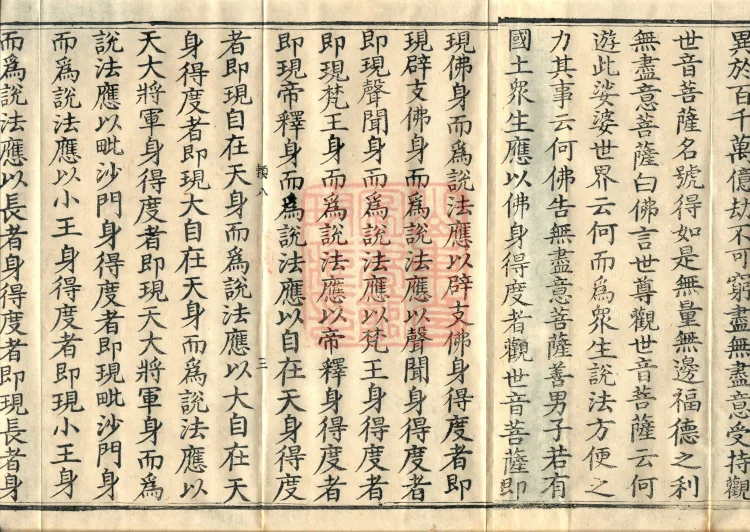 異於百千萬億劫不可窮盡無盡意受持觀
世音菩薩名號得如是無量無邊福德之利
無盡意菩薩白佛言世尊觀世音菩薩云何
遊此娑婆世界云何而為眾生說法方便之
力其事云何佛告無盡意菩薩善男子若有
國土眾生應以佛身得度者觀世音菩薩即
現佛身而為說法應以辟支佛身得度者即
現辟支佛身而為說法應以聲聞身得度者
即現聲聞身而為說法應以梵王身得度者
即現梵王身而為說法應以帝釋身得度者
即現帝釋身而為說法應以自在天身得度
者即現自在天身而為說法應以大自在天
身得度者即現大自在天身而為說法應以
天大將軍身得度者即現天大將軍身而為
說法應以毗沙門身得度者即現毗沙門身
而為說法應以小王身得度者即現小王身
而為說法應以長者身得度者即現長者身